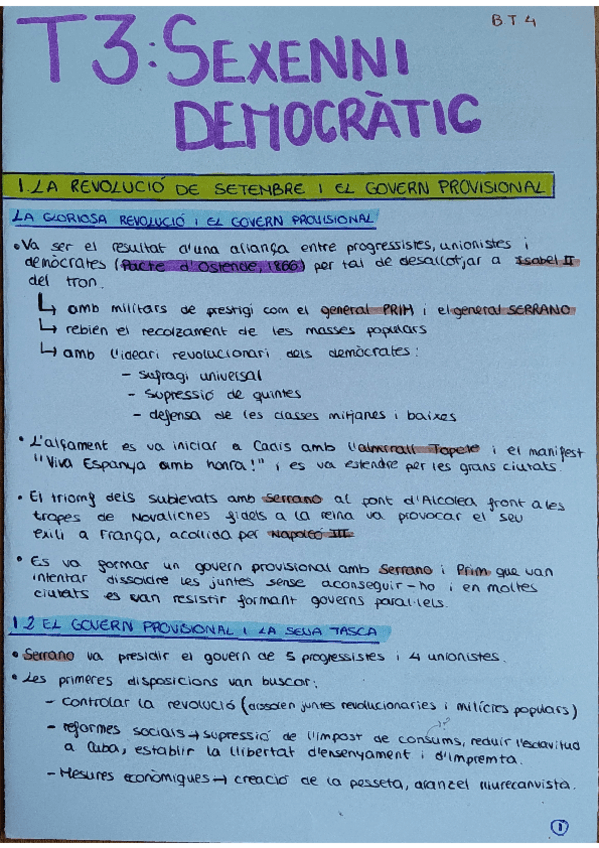 BT4
T3: SEXENNI
DEMOCRÀTIC
1. LA REVOLUCIÓ DE SETEMBRE I EL GOVERN PROVISIONAL
LA GLORIOSA REVOLUCIÓ I EL GOVERN PROVISIONAL
• Va ser el resultat d'una aliança entre progressistes, unionistes i
demòcrates (Pacte d'Ostende, 1866) per tal de desallotjar a Isabel II
del tron.
↳ amb militars de prestigi com el general PRIM i el general SERRANO
↳ rebien el recolzament de les masses populars
↳ amb l'ideari revolucionari dels demòcrates:
- sufragi universal
- supressió de quintes
- defensa de les classes mitjanes i baixes
• L'alçament es va iniciar a Cadis amb l'almirall Topete i el manifest
"Viva Espanya amb honra!" i es va estendre per les grans ciutats.
• El triomf dels sublevats amb Serrano al pont d'Alcolea front a les
tropes de Novaliches fidels a la reina va provocar el seu
exili a França, acollida per Napoleó III.
• Es va formar un govern provisional amb Serrano i Prim que van
intentar dissoldre les juntes sense aconseguir-ho i en moltes
ciutats es van resistir formant governs paral·lels.
1.2 EL GOVERN PROVISIONAL I LA SEUA TASCA
• Serrano va presidir el govern de 5 progressistes i 4 unionistes.
• Les primeres disposicions van buscar:
- controlar la revolució (dissolen juntes revolucionaries i milícies populars)
- reformes socials → supressió de l'impost de consums, reduir l'esclavitud
a Cuba, establir la llibertat d'ensenyament i d'impremta.
- Mesures econòmiques → creació de la pesseta, aranzel lliurecanvista.
1